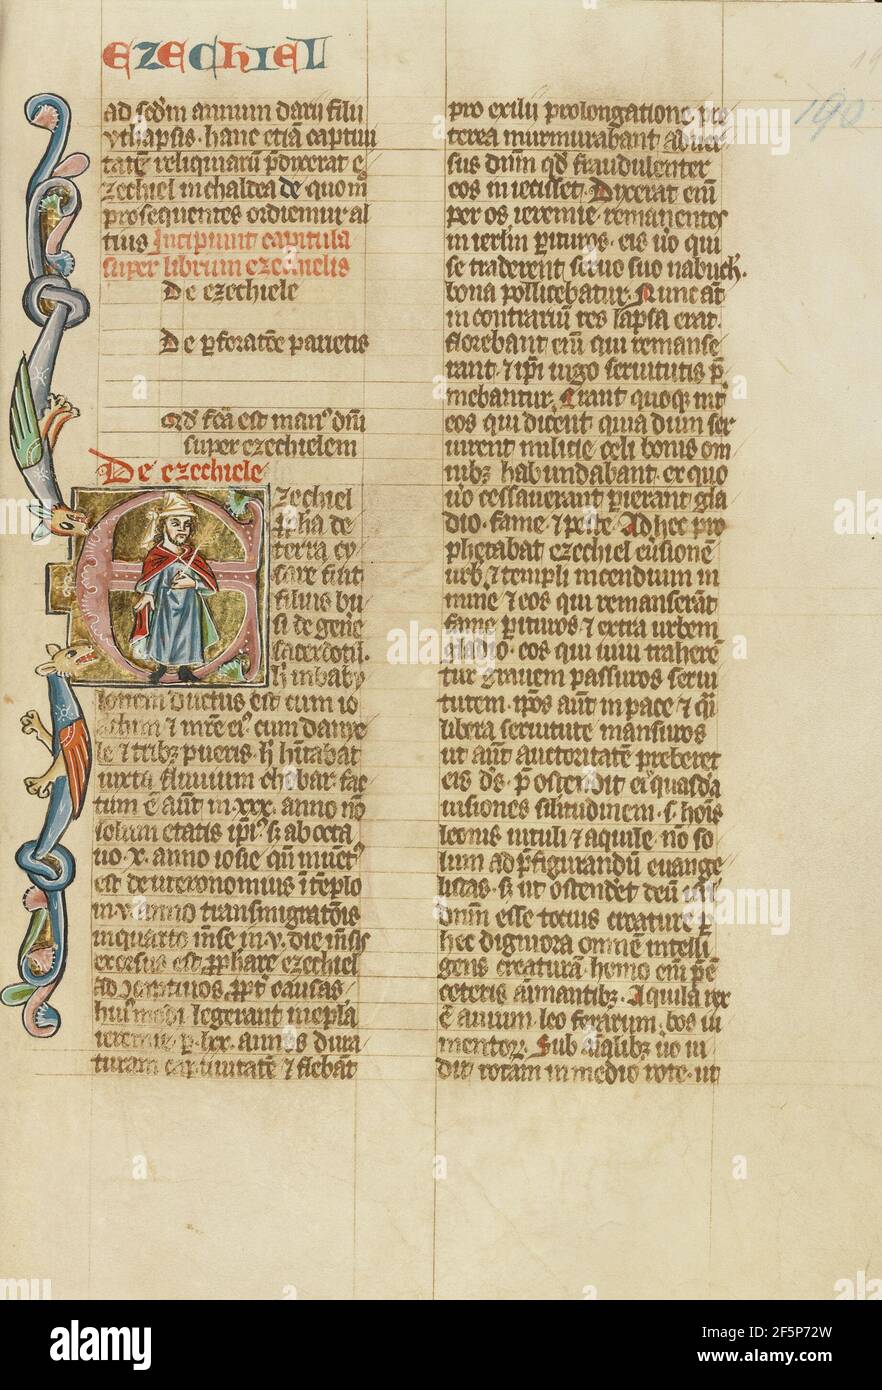 EZECHIEL
190
ad scdm annum darii filii
ythaspis. hanc etiā captivi
tatē reliquiarū pdixerat e
zechiel in chaldea de quom
prosequentes ordiemur al
tius Incipiunt capitula
super librum ezechielis
De ezechiele
De pforatōe parietis
Qd fca est man dni
super ezechielem
De ezechiele
Ezechiel
ppha de
terra
sare fuit
filius bu
si de gene
sacerdotū.
h in baby
lonem ductus est cum io
achim et mre ei cum danye
le et tribz pueris. h hitabat
iuxta fluuium chobar. fac
tum ē aūt in .xxx. anno nō
solum etatis ipi s; ab octa
uo .x. anno iosie qn inuent
est deuteronomius ī tēplo
in .v. anno transmigratōis
in quarto mēse in .v. die mēsis
exorsus est pphare ezechiel
ad captiuos, ppt causas
husmodi legerant in epla
ieremie. p .lxx. annos dura
turam captiuitatē et flebāt
pro exilii prolongatione. pre
terea murmurabant aduer
sus dnm qd fraudulenter
eos iniecisset. Dixerat eni
per os ieremie. remanentes
in ierlm pituros. eis uo qui
se traderent seruo suo nabuch.
bona pollicebatur. Nunc aūt
in contrariū res lapsa erat.
florebant enī qui remanse
rant. et ipi iugo seruitutis p
mebantur. Erant quoqz int
eos qui dicent quia dum ser
uirent militie celi bonis om
nibz habundabant. ex quo
uo cessauerant pierant gla
dio. fame et peste. Ad hec pro
phetabat ezechiel euisionē
urb et templi incendium in
mine et eos qui remanserāt
fame pituros et extra urbem
gladio. eos qui uiui traheren
tur grauem passuros serui
tutem. ipos aūt in pace et qsi
libera seruitute mansuros
ut aūt auctoritatē preberet
eis ds. p ostendit ei quasdā
uisiones silitudinem. s. hois
leonis uituli et aquile. nō so
lum ad pfigurandū euange
listas. s; ut ostendet deū isrl
dnm esse totius creature p
hec digniora omnem intelli
gens creaturā. homo enī pest
ceteris aīmantibz. Aquila rex
ē auium. leo ferarum. bos iu
mentoz. Sub aliqbz uo ui
dit rotam in medio rote. ut
alamy
Image ID: 2F5P72W
www.alamy.com